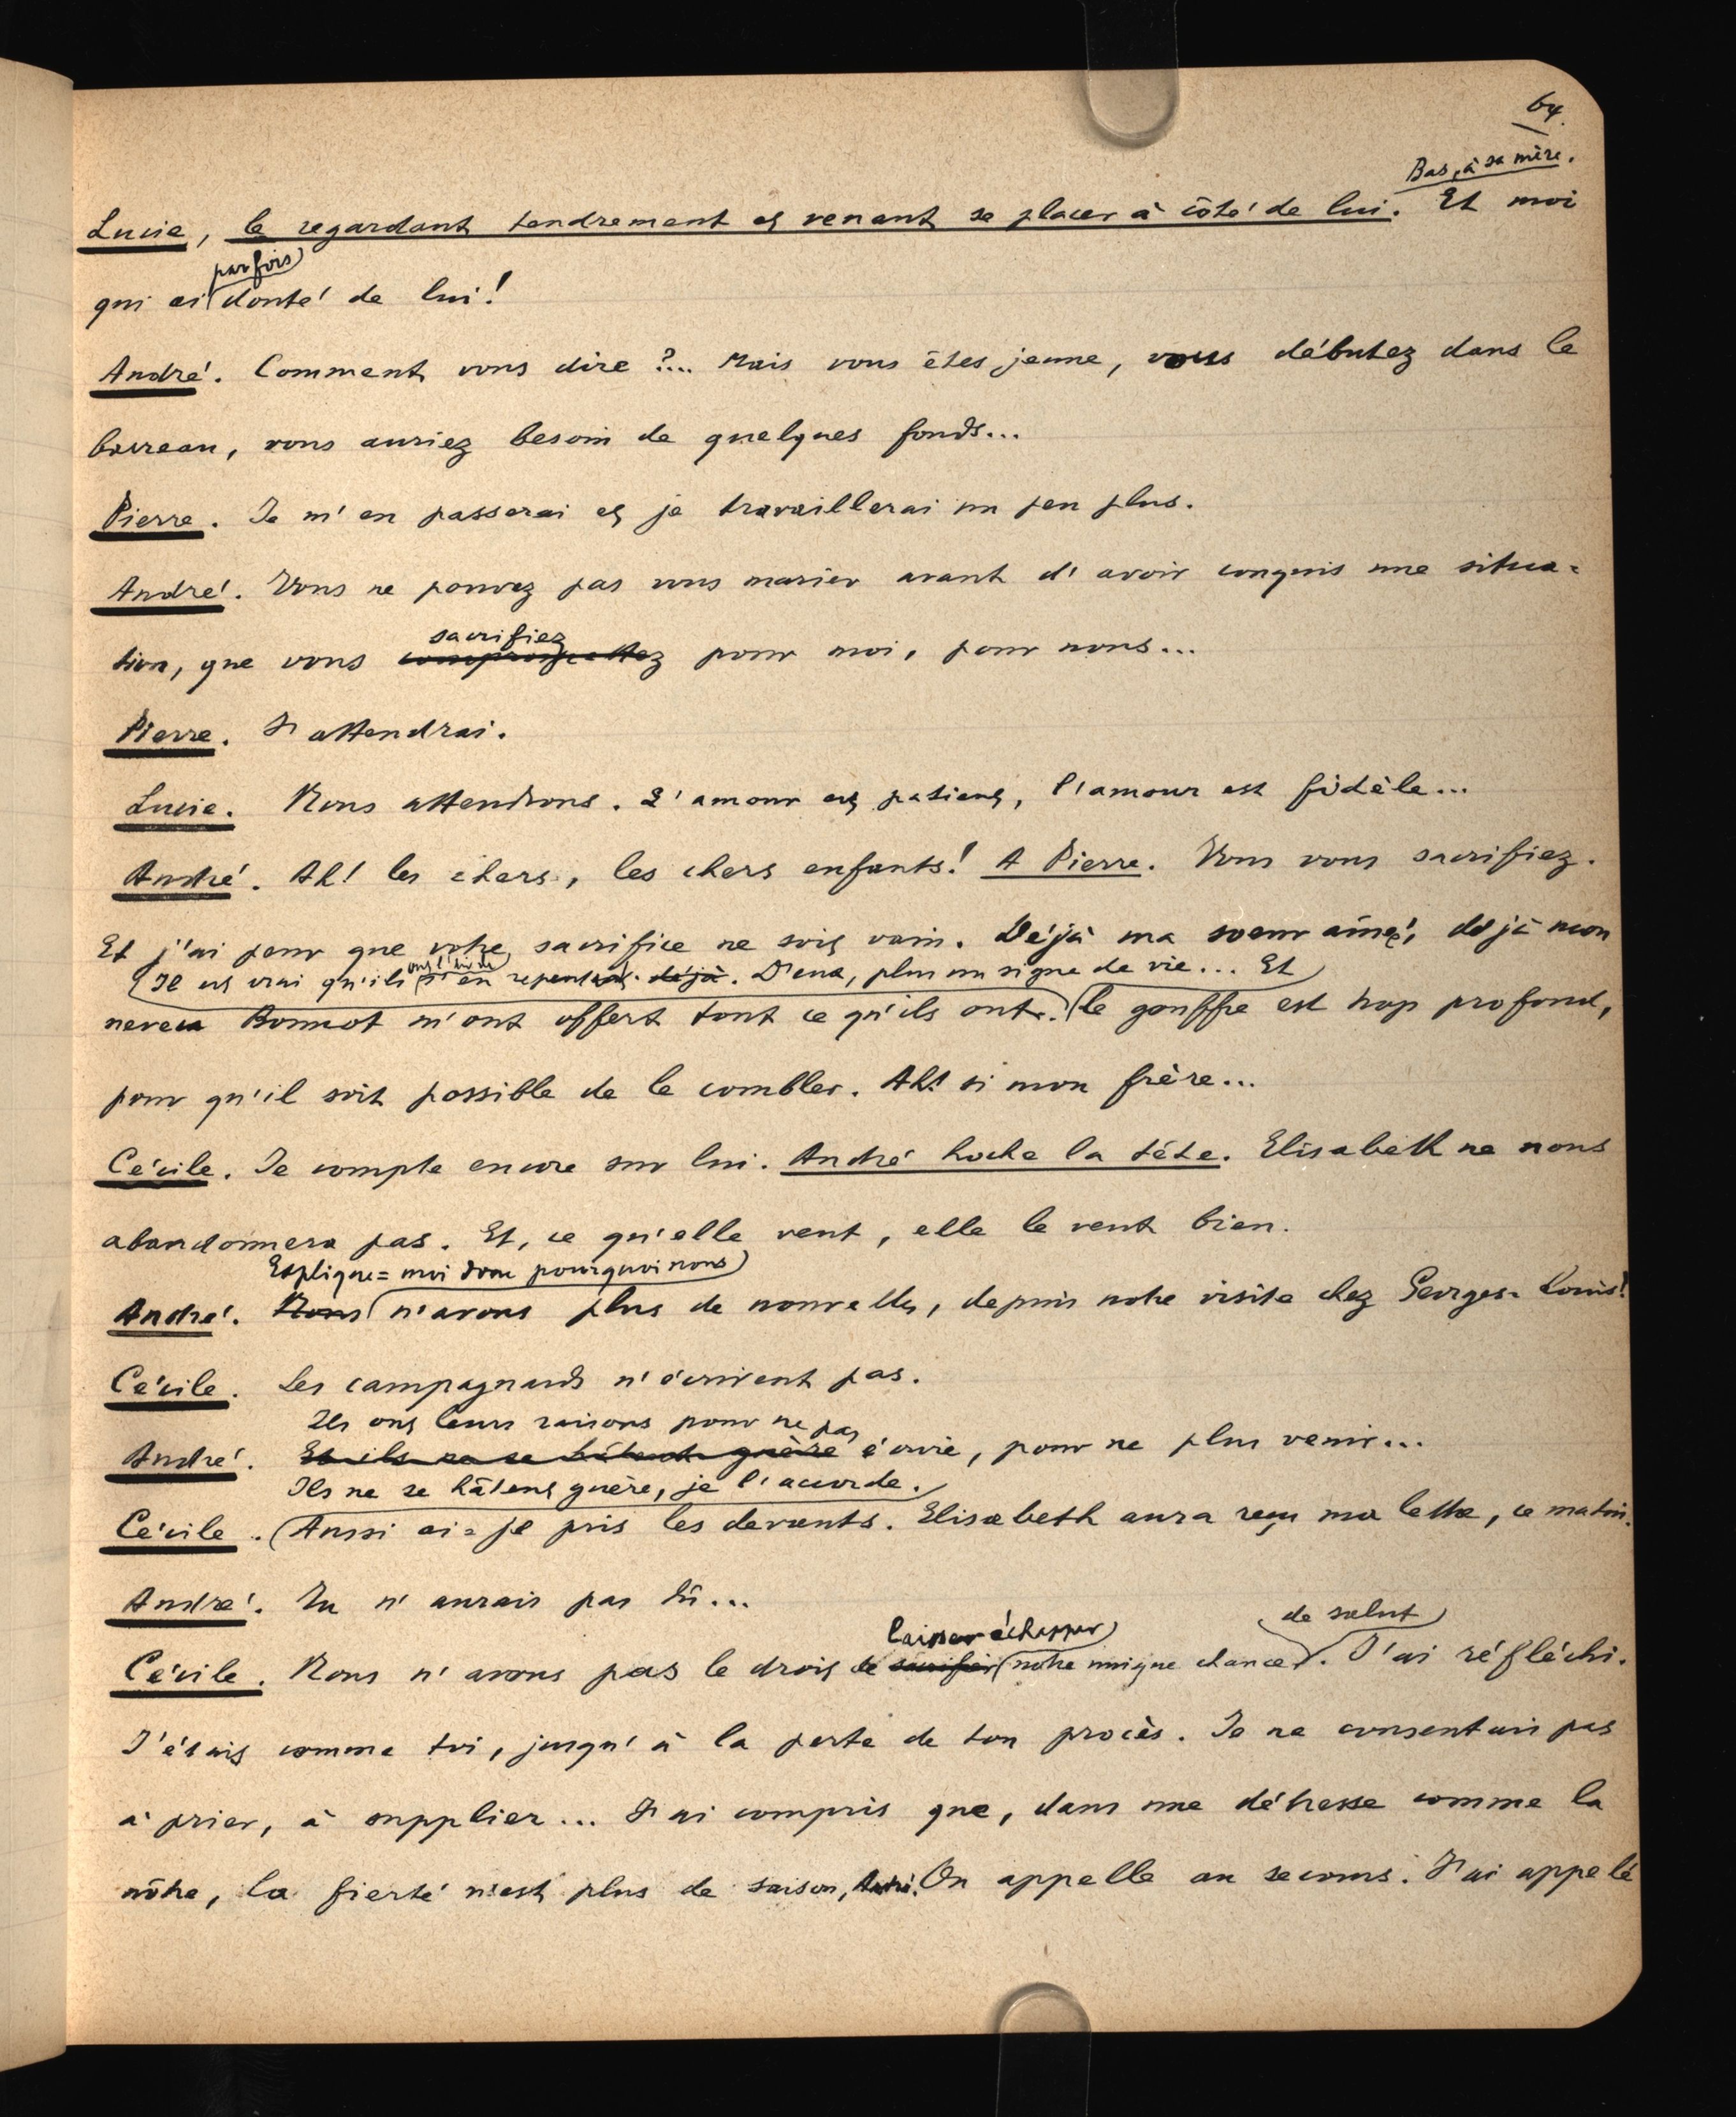 64.
Bas, à sa mère.
Lucie, le regardant tendrement et venant se placer à côté de lui. Et moi
parfois
qui ai douté de lui!
André. Comment vous dire?... Mais vous êtes jeune, vous débutez dans le
barreau, vous auriez besoin de quelques fonds...
Pierre. Je m'en passerai et je travaillerai un peu plus.
André. Vous ne pouvez pas vous marier avant d'avoir conquis une situa=
sacrifiez
tion, que vous compromettez pour moi, pour nous...
Pierre. J'attendrai.
Lucie. Nous attendrons. L'amour est patient, l'amour est fidèle...
André. Ah! les chers, les chers enfants! A Pierre. Vous vous sacrifiez.
Et j'ai peur que votre sacrifice ne soit vain. Déjà ma soeur aînée, déjà mon
Il est vrai qu'ils s'en repentent déjà. D'eux, plus un signe de vie... Et
neveu Bonnot m'ont offert tout ce qu'ils ont. le gouffre est trop profond,
pour qu'il soit possible de le combler. Ah! si mon frère...
Cécile. Je compte encore sur lui. André hoche la tête. Elisabeth ne nous
abandonnera pas. Et, ce qu'elle veut, elle le veut bien.
Explique=moi donc pourquoi nous
André. Nous n'avons plus de nouvelles, depuis notre visite chez Georges=Louis!
Cécile. Les campagnards n'écrivent pas.
Ils ont leurs raisons pour ne pas
André. Et ils ne se hâtent guère écrire, pour ne plus venir...
Ils ne se hâtent guère, je l'accorde.
Cécile. Aussi ai=je pris les devants. Elisabeth aura reçu ma lettre, ce matin.
André. Tu n'aurais pas dû...
laisser échapper de salut
Cécile. Nous n'avons pas le droit de sacrifier notre unique chance. J'ai réfléchi.
J'étais comme toi, jusqu'à la perte de ton procès. Je ne consentais pas
à prier, à supplier... J'ai compris que, dans une détresse comme la
nôtre, la fierté n'est plus de saison, André. On appelle au secours. J'ai appelé